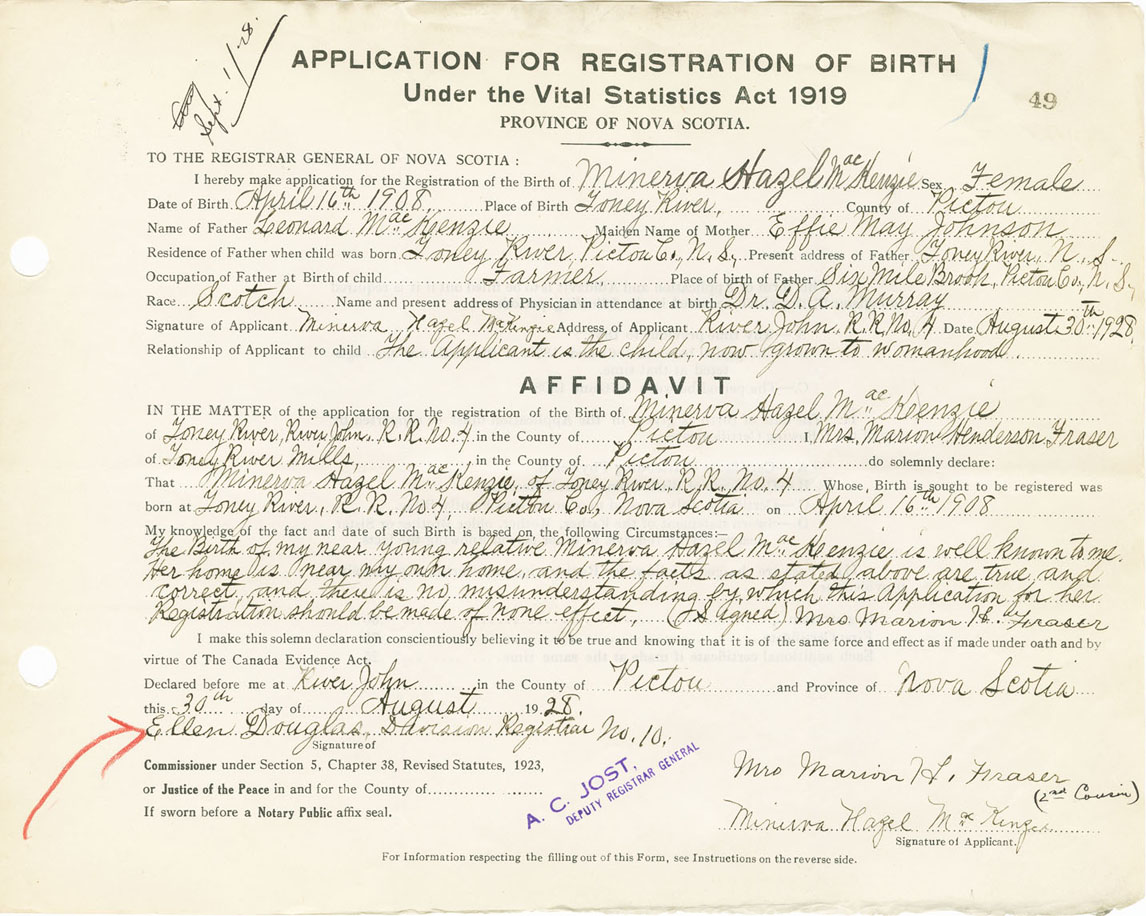 Sept. 1/28.
APPLICATION FOR REGISTRATION OF BIRTH
Under the Vital Statistics Act 1919
49
PROVINCE OF NOVA SCOTIA.
TO THE REGISTRAR GENERAL OF NOVA SCOTIA :
I hereby make application for the Registration of the Birth of Minerva Hazel MacKenzie Sex Female
Date of Birth April 16th 1908. Place of Birth Toney River, County of Pictou
Name of Father Leonard MacKenzie Maiden Name of Mother Effie May Johnson
Residence of Father when child was born Toney River, Pictou Co., N. S., Present address of Father Toney River, N. S.
Occupation of Father at Birth of child Farmer Place of birth of Father Six Mile Brook, Pictou Co., N. S.,
Race Scotch Name and present address of Physician in attendance at birth Dr. D. A. Murray
Signature of Applicant Minerva Hazel McKenzie Address of Applicant River John, R. R. No. 4 Date August 30th 1928
Relationship of Applicant to child The Applicant is the child, now grown to womanhood.
AFFIDAVIT
IN THE MATTER of the application for the registration of the Birth of Minerva Hazel MacKenzie
of Toney River, River John, R. R. No. 4 in the County of Pictou I, Mrs. Marion Henderson Fraser
of Toney River Mills, in the County of Pictou do solemnly declare:
That Minerva Hazel MacKenzie, of Toney River, R. R. No. 4 Whose, Birth is sought to be registered was
born at Toney River, R. R. No 4, Pictou Co., Nova Scotia on April 16th 1908
My knowledge of the fact and date of such Birth is based on the following Circumstances:—
The Birth of my near young relative Minerva Hazel MacKenzie is well known to me.
Her home is near my own home, and the facts as stated above are true and
correct, and there is no misunderstanding by which this Application for her
Registration should be made of none effect. (Signed) Mrs Marion H. Fraser
I make this solemn declaration conscientiously believing it to be true and knowing that it is of the same force and effect as if made under oath and by
virtue of The Canada Evidence Act.
Declared before me at River John in the County of Pictou and Province of Nova Scotia
this 30th day of August 1928.
Ellen Douglas, Division Registrar No. 10.
Signature of
Commissioner under Section 5, Chapter 38, Revised Statutes, 1923,
or Justice of the Peace in and for the County of
If sworn before a Notary Public affix seal.
A. C. JOST,
DEPUTY REGISTRAR GENERAL
Mrs Marion H. Fraser
(2nd Cousin)
Minerva Hazel MacKenzie
Signature of Applicant.
For Information respecting the filling out of this Form, see Instructions on the reverse side.